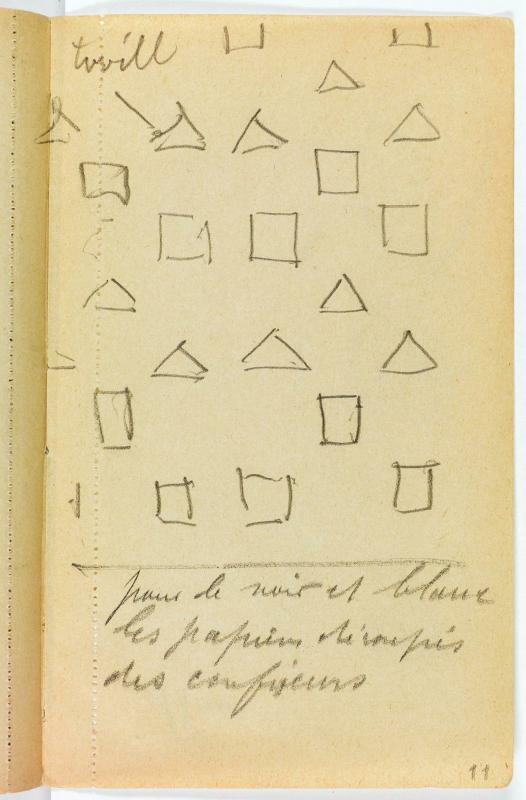 tvvill
pour le noir et blanc
les papiers découpés
des confiseurs
11